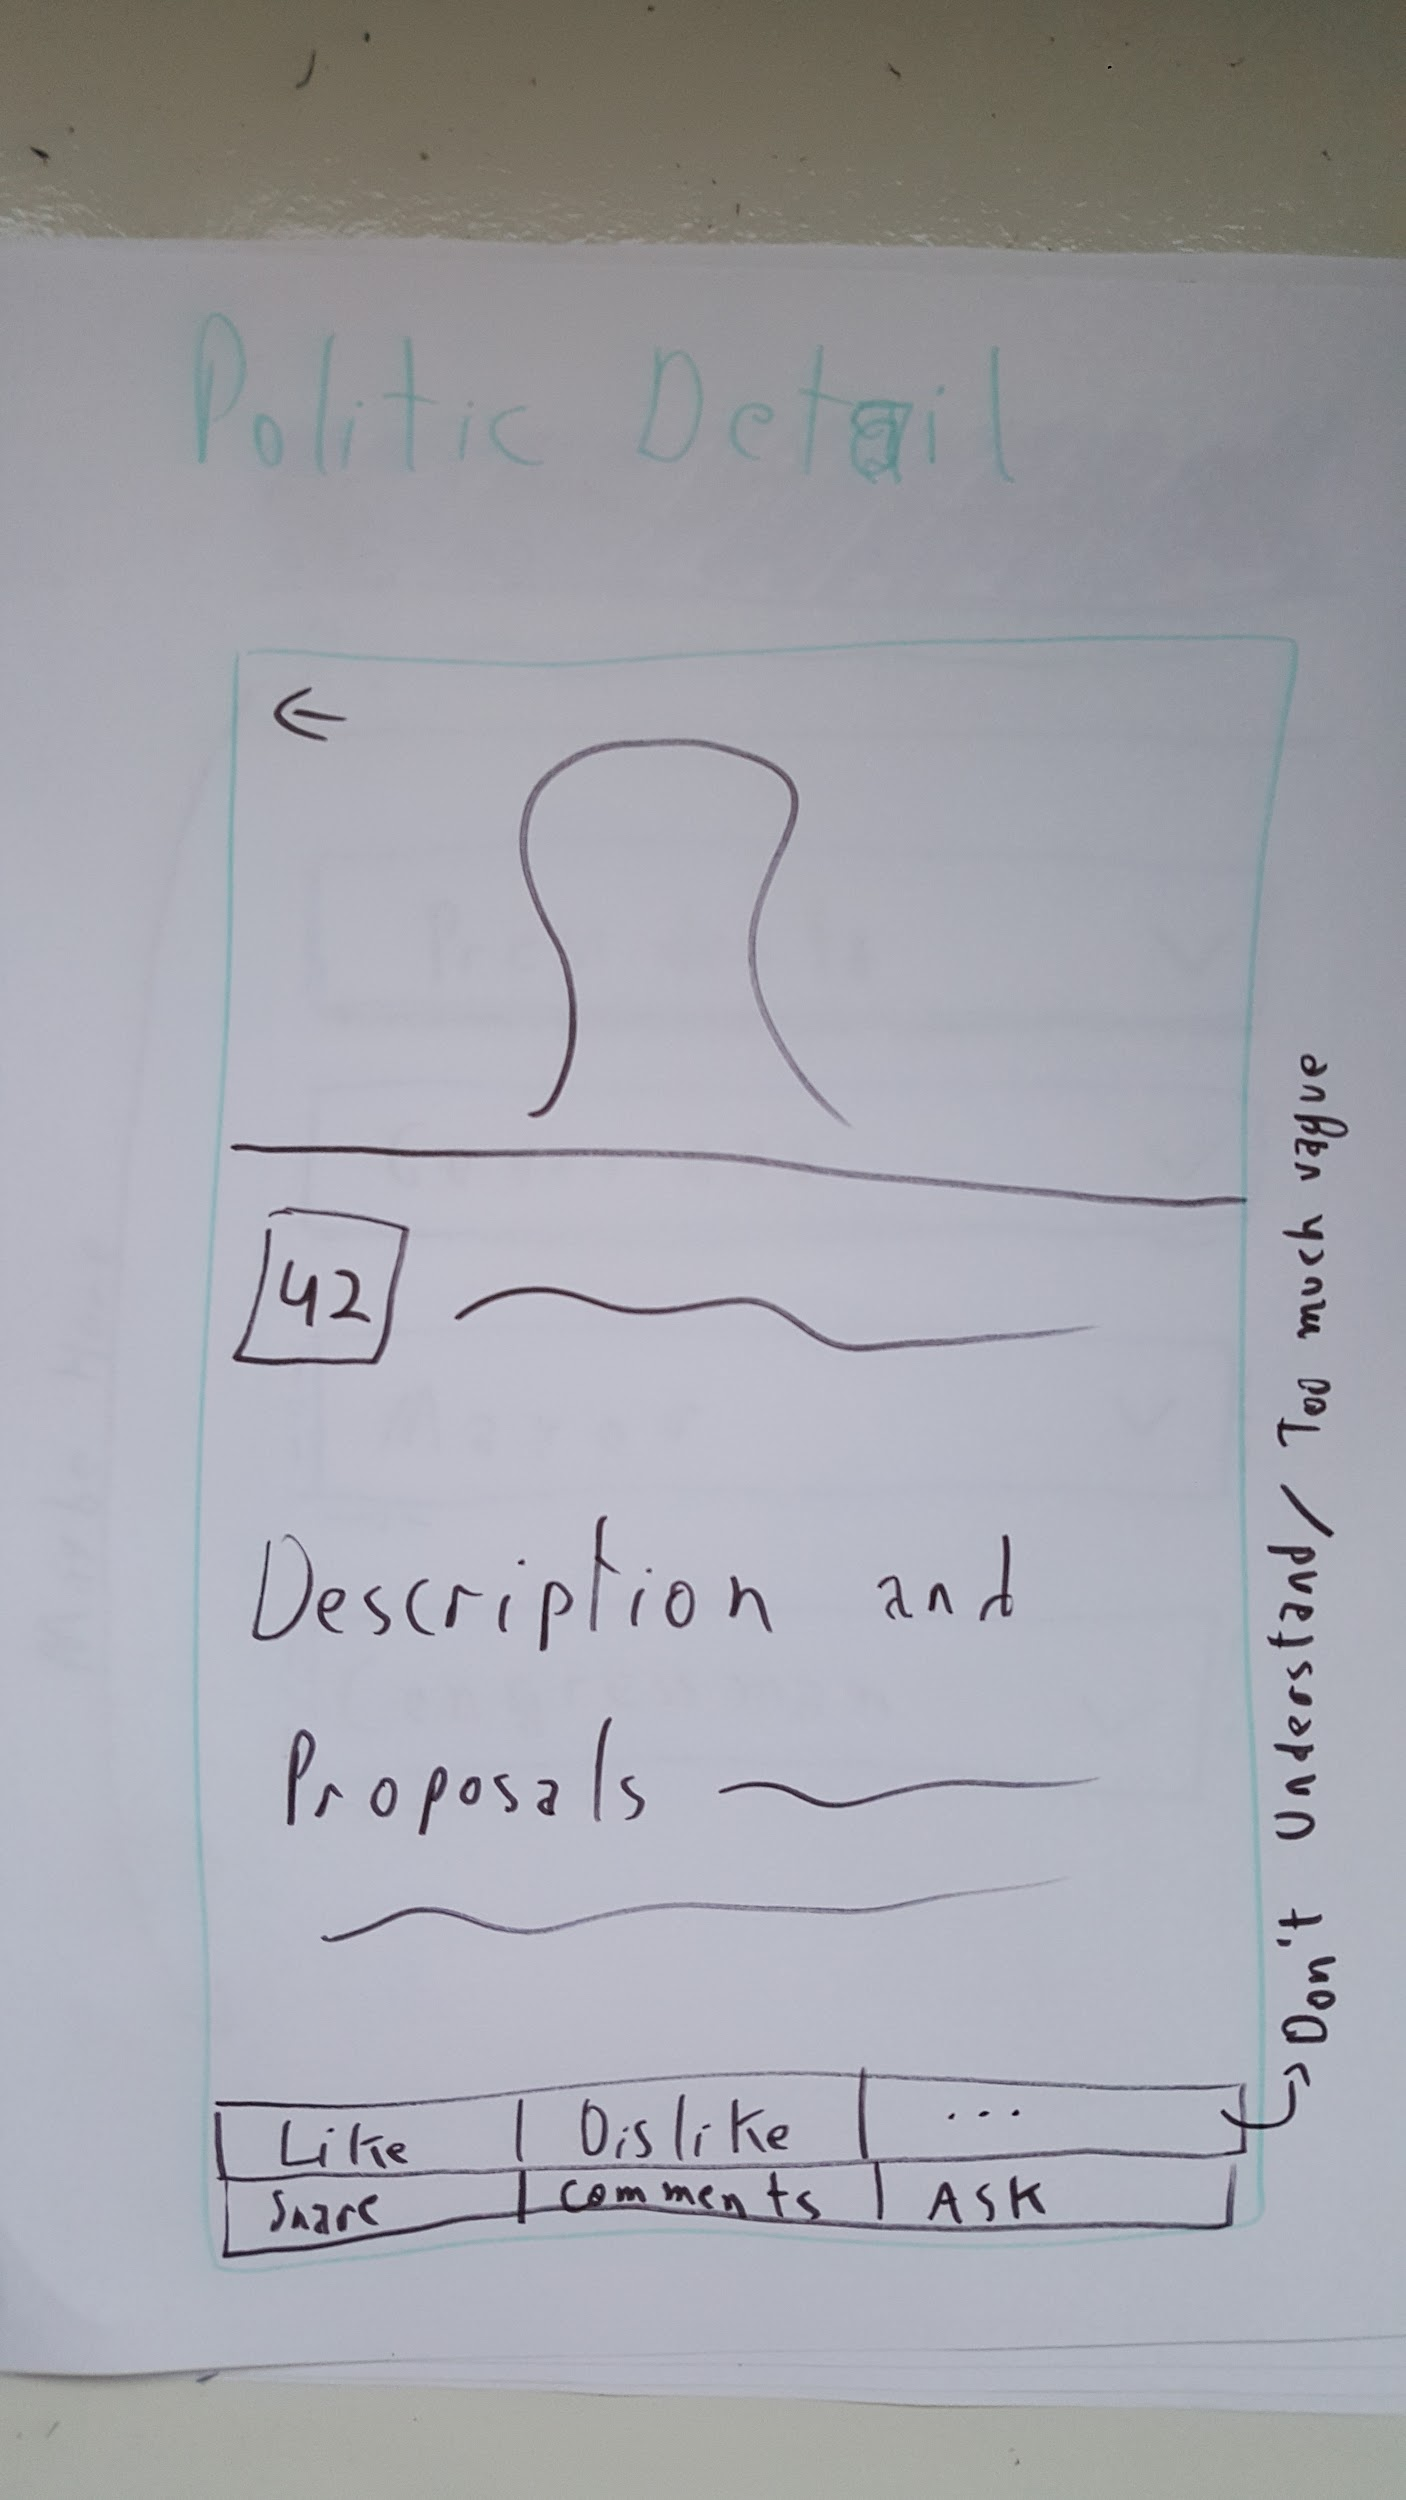 Politic Detail
←
42
Description and
Proposals
Like | Dislike | ...
Share | Comments | ASK
Don't Understand / Too much vague